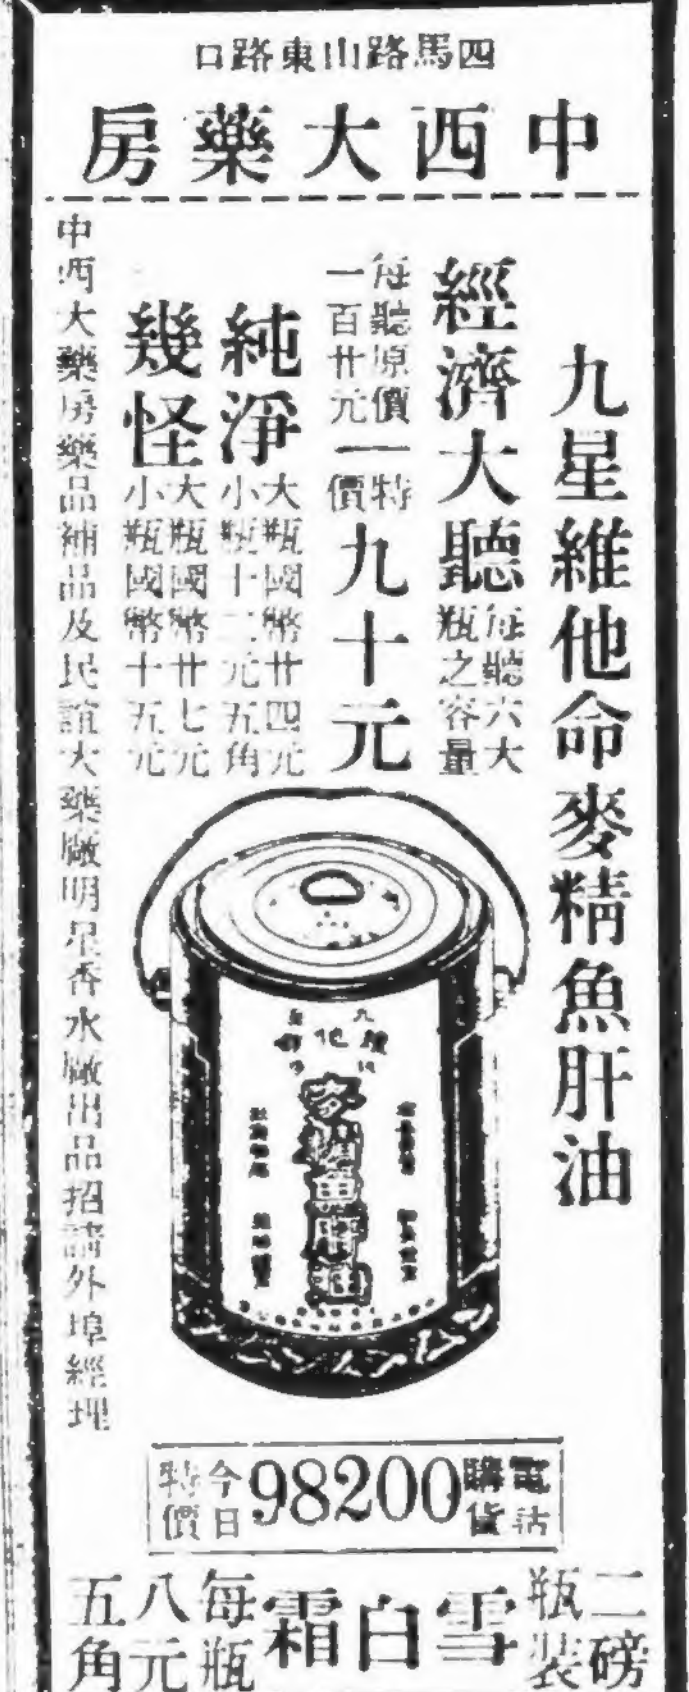 四馬路山東路口
中西大藥房
九星維他命麥精魚肝油
經濟大聽
每聽六大
瓶之容量
每聽原價
一百廿元
特價
九十元
純淨
大瓶國幣廿四元
小瓶十二元五角
幾怪
大瓶國幣廿七元
小瓶國幣十五元
中西大藥房藥品補品及民誼大藥廠明星香水廠出品招請外埠經理
麥精魚肝油
電話
購貨
98200
今日
特價
二磅
瓶裝
雪白霜
每瓶
八元
五角